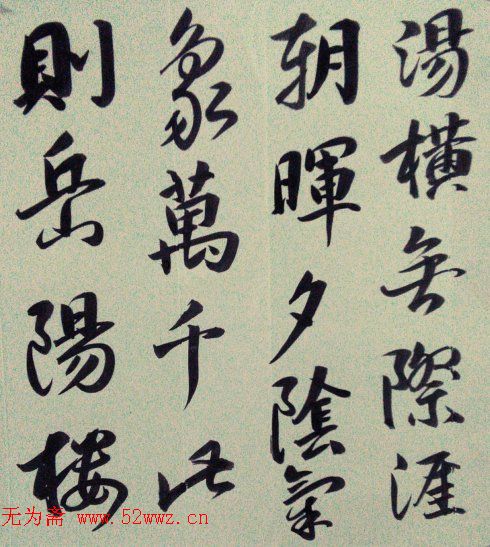 湯橫无際涯
朝暉夕陰氣
象萬千此
則岳陽樓
无为斋 www.52wwz.cn